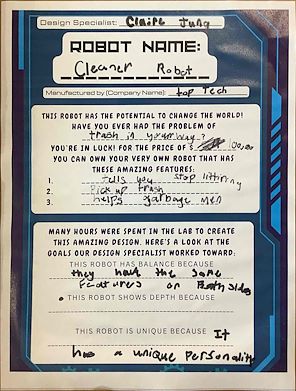 Design Specialist: Claire Jung
ROBOT NAME:
Cleaner Robot
Manufactured by (Company Name): top Tech
THIS ROBOT HAS THE POTENTIAL TO CHANGE THE WORLD!
HAVE YOU EVER HAD THE PROBLEM OF
trash in your way?
YOU'RE IN LUCK! FOR THE PRICE OF $ 100,00
YOU CAN OWN YOUR VERY OWN ROBOT THAT HAS
THESE AMAZING FEATURES:
1. tells you stop littering
2. Pick up trash
3. helps garbage men
MANY HOURS WERE SPENT IN THE LAB TO CREATE
THIS AMAZING DESIGN. HERE'S A LOOK AT THE
GOALS OUR DESIGN SPECIALIST WORKED TOWARD:
THIS ROBOT HAS BALANCE BECAUSE
they have the same
Features on Both sides
THIS ROBOT SHOWS DEPTH BECAUSE
THIS ROBOT IS UNIQUE BECAUSE It
has a unique Personality